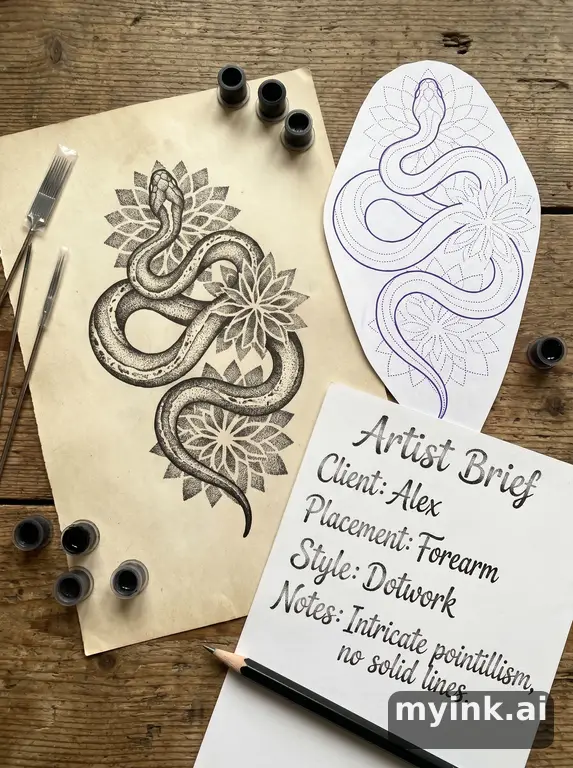 Artist Brief
Client: Alex
Placement: Forearm
Style: Dotwork
Notes: Intricate pointillism,
no solid lines.
myink.ai